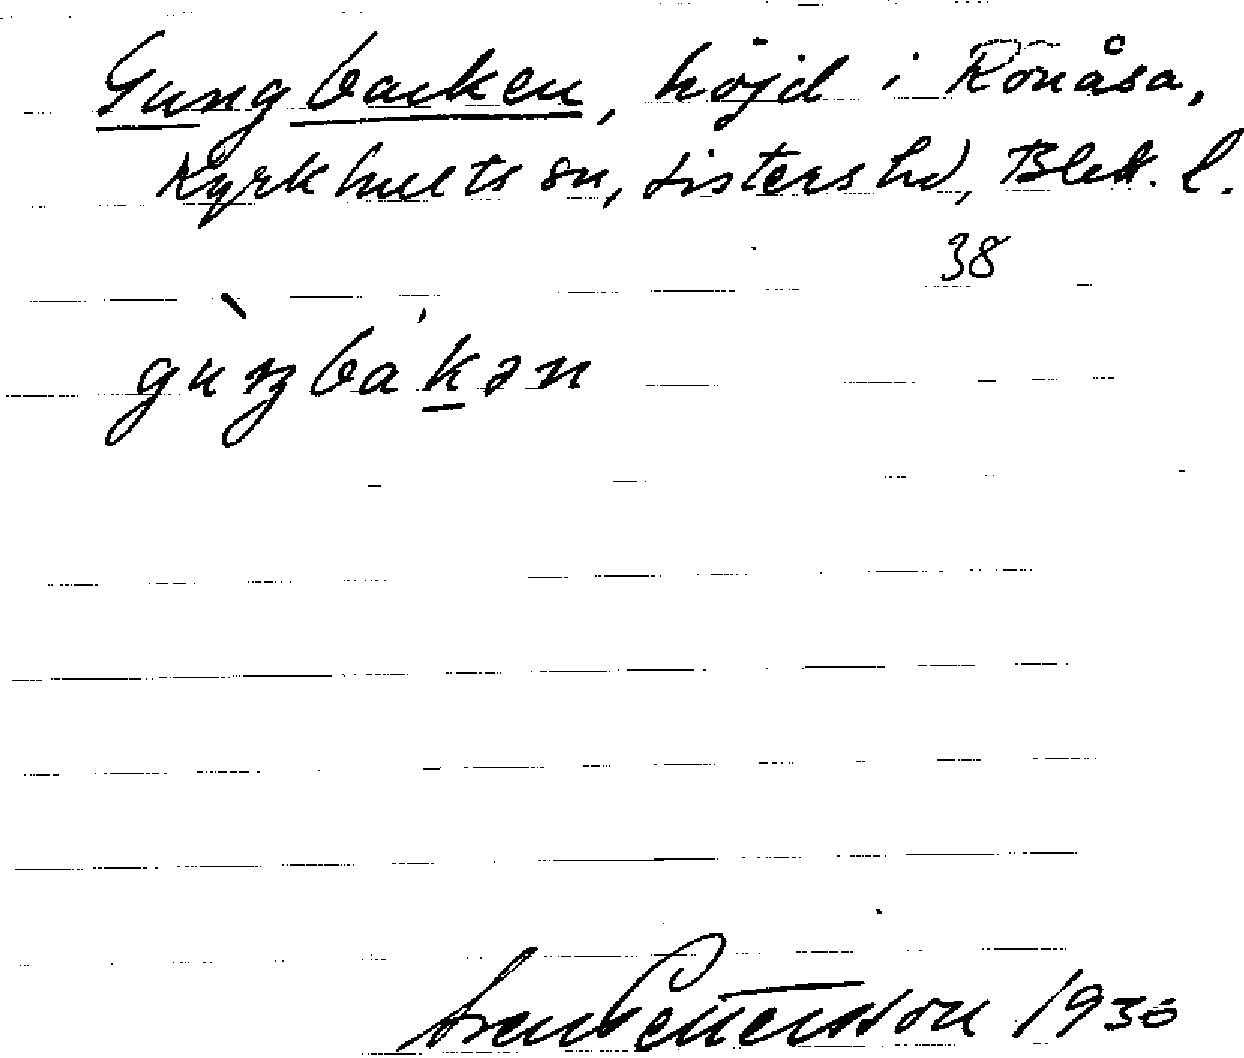 Gungbacken, höjd i Ronåsa,
Kyrkhults sn, Listers hd, Blek. l.
38
gùŋbákən
Sven Pettersson 1930